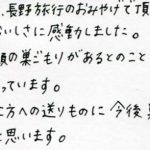 、長野旅行のおみやげで頂
いしさに感動しました。
頭の巣ごもりがあるとのこと
っています。
方への送りものに今後
と思います。